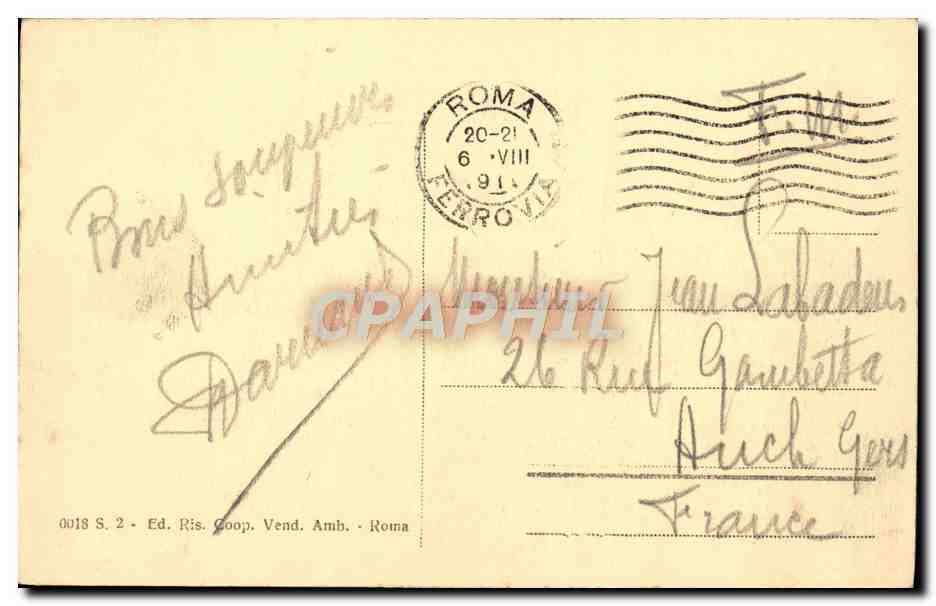 Bons souvenirs
Amitiés
ROMA
20-21
6 VIII
FERROVIA
F.M.
Monsieur Jean
26 Rue Gambetta
Auch Gers
France
CPAPHIL
0018 S. 2 - Ed. Ris. Coop. Vend. Amb. - Roma